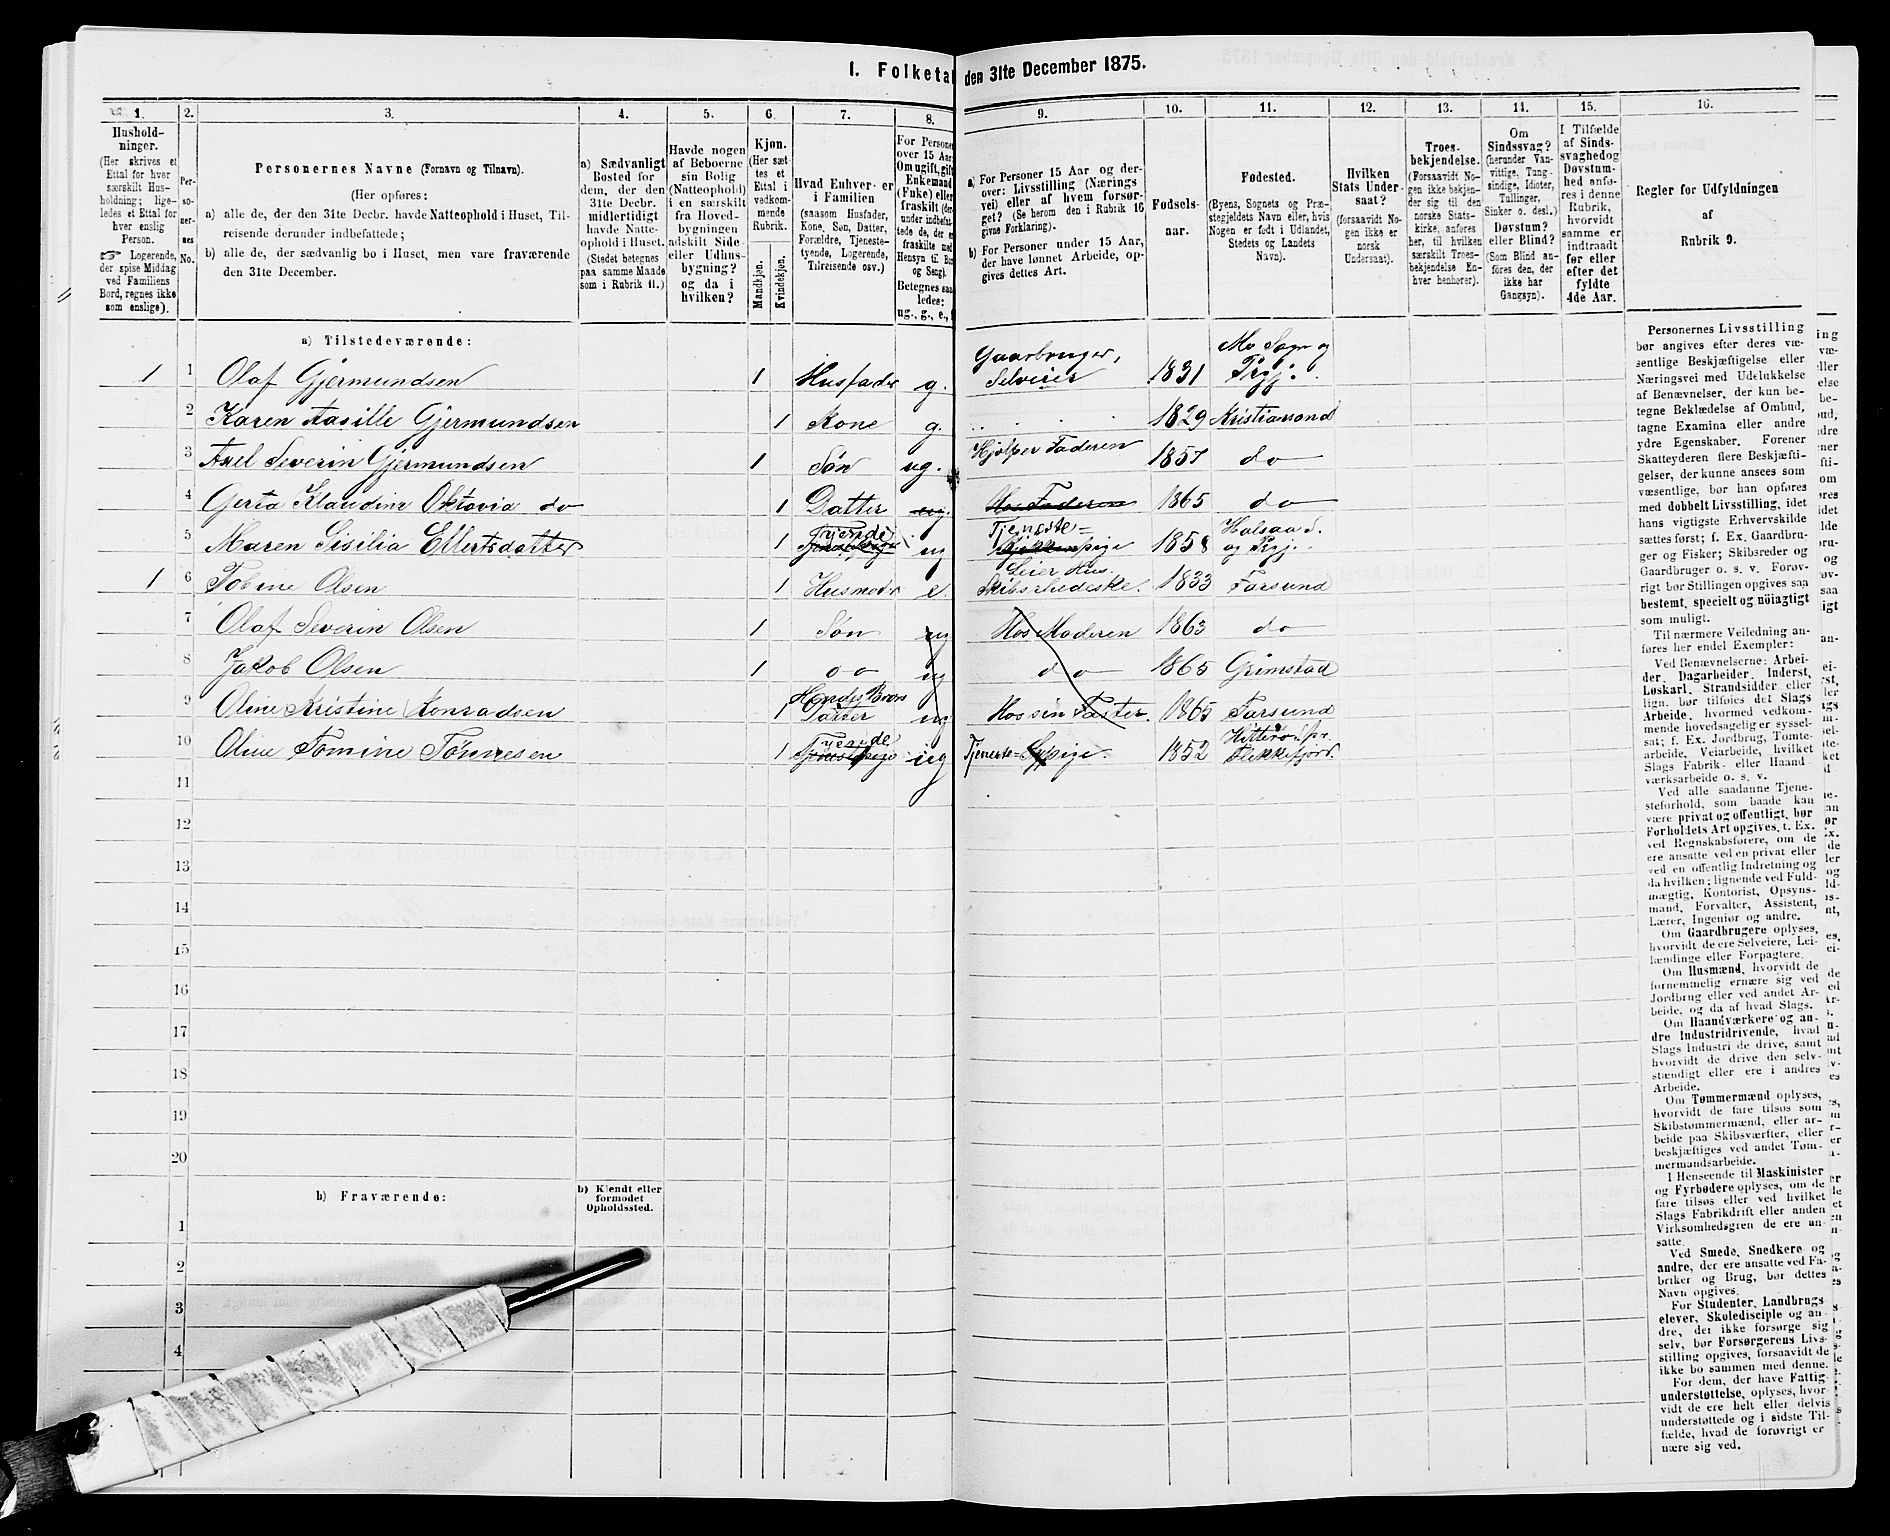 1. Folketal den 31te December 1875.
1.
Hushold-
ninger.
(Her skrives et
Ettal for hver
særskilt Hus-
holdning; lige-
ledes et Ettal for
hver enslig
Person.
☞ Logerende,
der spise Middag
ved Familiens
Bord, regnes ikke
som enslige).
2.
Per-
so-
ner-
nes
No.
3.
Personernes Navne (Fornavn og Tilnavn).
(Her opføres:
a) alle de, der den 31te Decbr. havde Natteophold i Huset, Til-
reisende derunder indbefattede;
b) alle de, der sædvanlig bo i Huset, men vare fraværende
den 31te December.
4.
a) Sædvanligt
Bosted for
dem, der den
31te Decbr.
midlertidigt
havde Natte-
ophold i Huset.
(Stedet betegnes
paa samme Maade
som i Rubrik 11.)
5.
Havde nogen
af Beboerne
sin Bolig
(Natteophold)
i en særskilt
fra Hoved-
bygningen
adskilt Side-
eller Udhus-
bygning?
og da i
hvilken?
6.
Kjøn.
(Her sæt-
tes et
Ettal i
vedkom-
mende
Rubrik.
Mandkjøn.
Kvindekjøn.
7.
Hvad Enhver er
i Familien
(saasom Husfader,
Kone, Søn, Datter,
Forældre, Tjeneste-
tyende, Logerende,
Tilreisende osv.)
8.
For Persone
over 15 Aar
Om ugift, gift
Enkemand
(Enke) eller
fraskilt (der-
under indbefat-
tede de, der er
fraskilte med
Hensyn til Bo
og Seng).
Betegnes saa
ledes:
ug., g., e.,
9.
a) For Personer 15 Aar og der-
over: Livsstilling (Nærings
vei) eller af hvem forsør-
get? (Se herom den i Rubrik 16
givne Forklaring).
b) For Personer under 15 Aar,
der have lønnet Arbeide, op-
gives dettes Art.
10.
Fødsels-
aar.
11.
Fødested.
(Byens, Sognets og Præ-
stegjeldets Navn eller, hvis
Nogen er født i Udlandet,
Stedets og Landets
Navn).
12.
Hvilken
Stats Under-
saat?
(forsaavidt No-
gen ikke er
norsk
Undersaat).
13.
Troes-
bekjendelse.
(Forsaavidt No-
gen ikke bekjen-
der sig til den
norske Stats-
kirke, anføres
her, til hvilken
særskilt Troes-
bekjendelse En-
hver henhører).
14.
Om
Sindssvag?
(herunder Van-
vittige, Tung-
sindige, Idioter,
Tullinger,
Sinker o. desl.)
Døvstum?
eller Blind?
(Som Blind an-
føres den, der
ikke har
Gangsyn).
15.
I Tilfælde
af Sinds-
svaghed og
Døvstum-
hed anfø-
res i denne
Rubrik,
hvorvidt
samme er
indtraadt
før eller
efter det
fyldte
4de Aar.
16.
Regler for Udfyldningen
af
Rubrik 9.
a) Tilstedeværende:
1 1 Olaf Gjermundsen 1 Husfader g. Gaarbruger, Selveier 1831 Mo Sogn og Prgj.
2 Karen Aasille Gjermundsen 1 Kone g. 1829 Kristiansand
3 Axel Severin Gjermundsen 1 Søn ug. Hjelper Faderen 1857 do
4 Gerta Klaudine Oktavia do 1 Datter ug Hos Faderen 1865 do
5 Maren Sisilia Ellertsdatter 1 Tyende ug Tjeneste= pige 1858 Halsaa S. og Prgj.
1 6 Tobine Olsen 1 Husmoder e. Leier Hus. 1833 Farsund
7 Olaf Severin Olsen 1 Søn ug Hos Moderen 1863 do
8 Jakob Olsen 1 do ug do 1865 Grimstad
9 Oline Kristine Konradsen 1 Hendes Brors Datter ug Hos sin Faster 1865 Farsund
10 Oline Tomine Tønnesen 1 Tyende ug Tjeneste= pige. 1852 Hitterø Flekkefjord.
11
12
13
14
15
16
17
18
19
20
b) Fraværende:
b) Kjendt eller
formodet
Opholdssted.
1
2
3
4
Personernes Livsstilling
bør angives efter deres væ-
sentlige Beskjæftigelse eller
Næringsvei med Udelukkelse
af Benævnelser, der kun be-
tegne Beklædelse af Ombud,
tagne Examina eller andre
ydre Egenskaber. Forener
Skatteyderen flere Beskjæfti-
gelser, der kunne ansees som
væsentlige, bør han opføres
med dobbelt Livsstilling, idet
hans vigtigste Erhvervskilde
sættes først; f. Ex. Gaardbru-
ger og Fisker; Skibsreder og
Gaardbruger o. s. v. Forøv-
rigt bør Stillingen opgives saa
bestemt, specielt og nöiagtigt
som muligt.
Til nærmere Veiledning an-
føres her endel Exempler:
Ved Benævnelserne: Arbei-
der, Dagarbeider, Inderst,
Løskarl, Strandsidder eller
lign. bør tilføies det Slags
Arbeide, hvormed vedkom-
mende hovedsagelig er syssel-
sat; f. Ex. Jordbrug, Tomte-
arbeide, Veiarbeide, hvilket
Slags Fabrik- eller Haand
værksarbeide o. s. v.
Ved alle saadanne Tjene-
steforhold, som baade kan
være privat og offentligt, bør
Forholdets Art opgives, t. Ex.
ved Regnskabsførere, om de
ere ansatte ved en privat eller
ved en offentlig Indretning og
da hvilken; lignende ved Fuld-
mægtig, Kontorist, Opsyns-
mand, Forvalter, Assistent,
Lærer, Ingeniør og andre.
Om Gaardbrugere oplyses,
hvorvidt de ere Selveiere, Lei-
lændinge eller Forpagtere.
Om Husmænd, hvorvidt de
fornemmelig ernære sig ved
Jordbrug eller ved andet Ar-
beide, og da af hvad Slags.
Om Haandværkere og an-
dre Industridrivende, hvad
Slags Industri de drive, samt
hvorvidt de drive den selv-
stændigt eller ere i andres
Arbeide.
Om Tømmermænd oplyses,
hvorvidt de fare tilsøs som
Skibstømmermænd, eller ar-
beide paa Skibsværfter, eller
beskjæftiges ved andet Tøm-
mermandsarbeide.
I Henseende til Maskinister
og Fyrbødere oplyses, om de
fare tilsøs eller ved hvilket
Slags Fabrikdrift eller anden
Virksomhedsgren de ere an-
satte.
Ved Smede, Snedkere og
andre, der ere ansatte ved Fa-
briker og Brug, bør dettes
Navn opgives.
For Studenter, Landbrugs
elever, Skoledisciple og an-
dre, der ikke forsørge sig
selv, bør Forsørgerens Livs-
stilling opgives, forsaavidt de
ikke bo sammen med denne.
For dem, der have Fattig-
understøttelse, oplyses, hvor-
vidt de ere helt eller delvis
understøttede og i sidste Til-
fælde, hvad de forøvrigt er
nære sig ved.